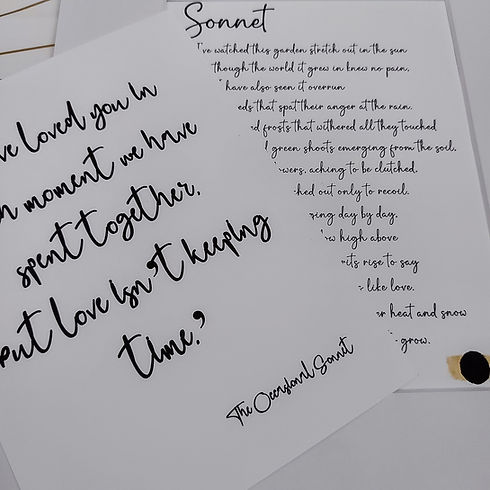 Sonnet
I've watched this garden stretch out in the sun
though the world it grew in knew no pain,
have also seen it overrun
eds that spat their anger at the rain.
d frosts that withered all they touched
green shoots emerging from the soil,
wers, aching to be clutched.
hed out only to recoil.
ing day by day.
w high above
its rise to say
like love.
r heat and snow
grow.
ve loved you in
h moment we have
spent together,
but love isn't keeping
time.'
The Occasional Sonnet